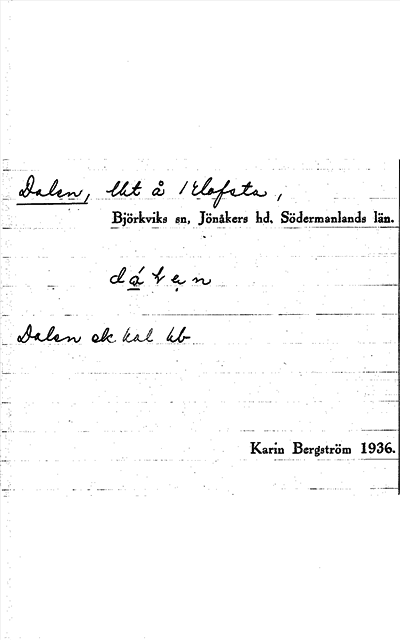 Dalen, lht å 1 Elofsta,
Björkviks sn, Jönåkers hd, Södermanlands län.
Dalen ek kal hb
Karin Bergström 1936.